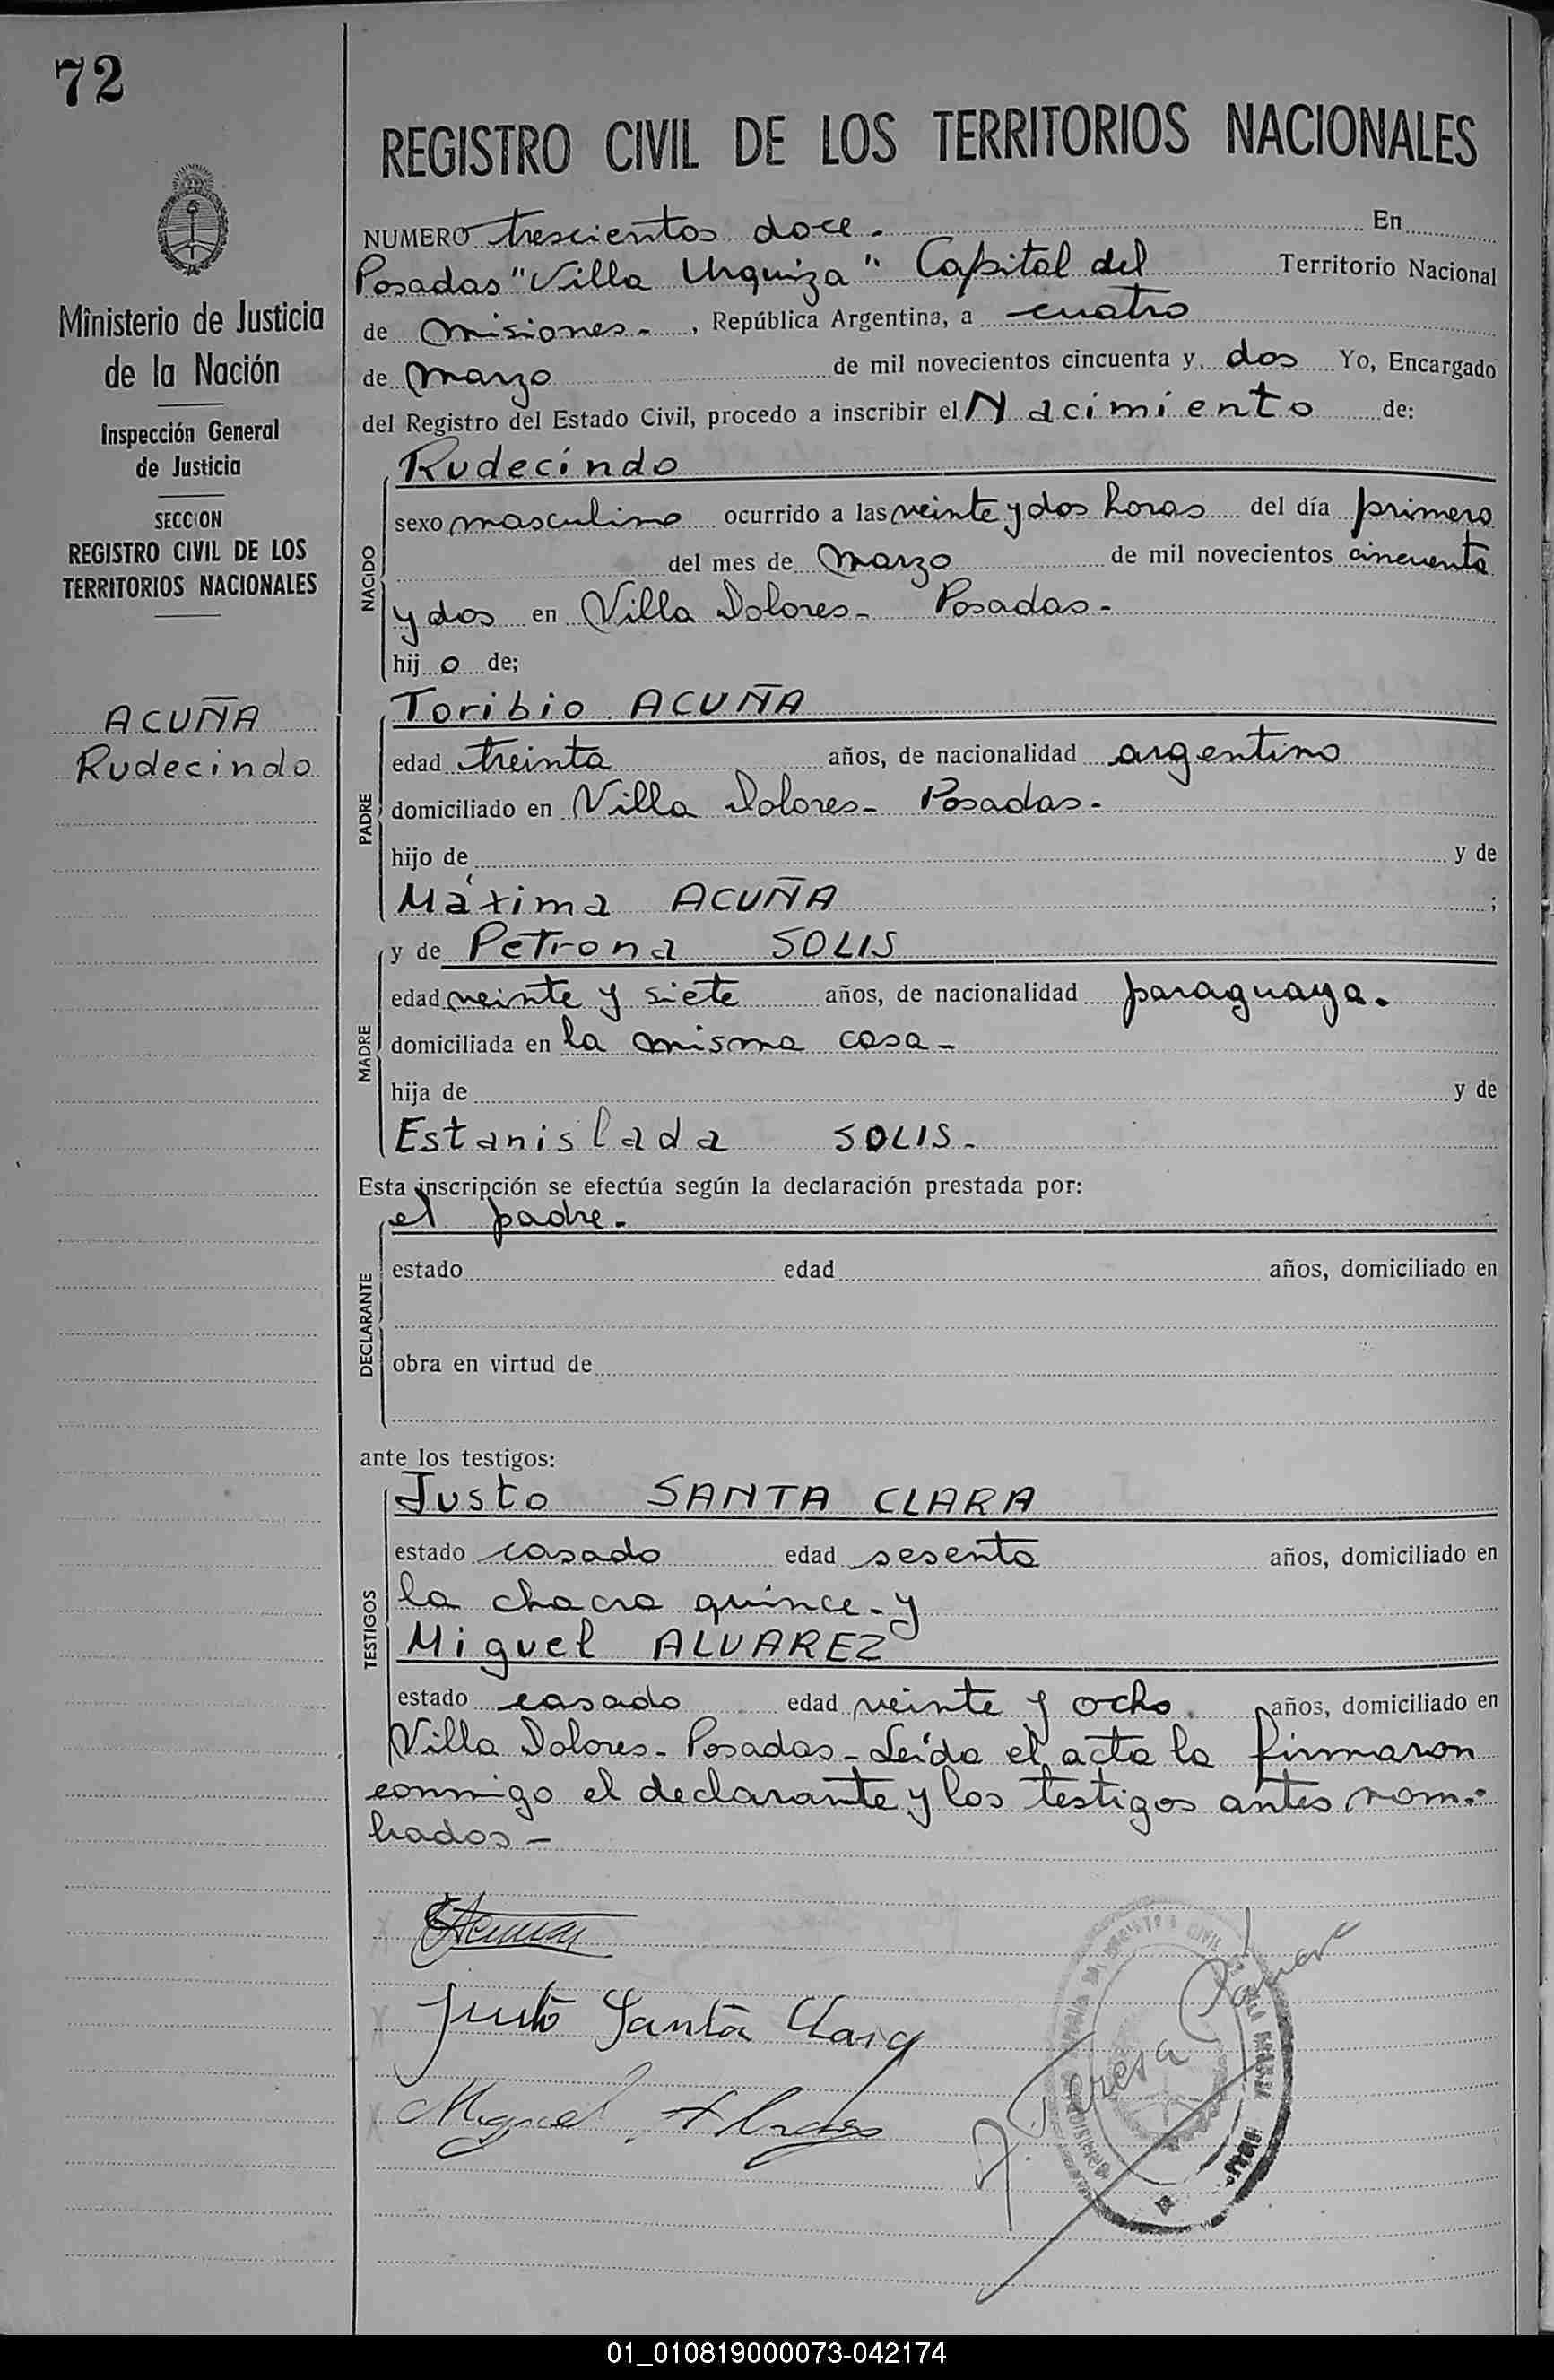 72
REGISTRO CIVIL DE LOS TERRITORIOS NACIONALES
Ministerio de Justicia
de la Nación
Inspección General
de Justicia
SECCION
REGISTRO CIVIL DE LOS
TERRITORIOS NACIONALES
ACUÑA
Rudecindo
NUMERO trescientos doce. En
Posadas "Villa Urquiza" Capital del Territorio Nacional
de Misiones-, República Argentina, a cuatro
de Marzo de mil novecientos cincuenta y dos Yo, Encargado
del Registro del Estado Civil, procedo a inscribir el Nacimiento de:
NACIDO
Rudecindo
sexo masculino ocurrido a las veinte y dos horas del día primero
del mes de Marzo de mil novecientos cincuenta
y dos en Villa Dolores- Posadas-
hijo de;
PADRE
Toribio ACUÑA
edad treinta años, de nacionalidad argentino
domiciliado en Villa Dolores- Posadas-
hijo de y de
Máxima ACUÑA ;
MADRE
y de Petrona SOLIS
edad veinte y siete años, de nacionalidad paraguaya.
domiciliada en la misma casa-
hija de y de
Estanislada SOLIS-
Esta inscripción se efectúa según la declaración prestada por:
DECLARANTE
el padre-
estado edad años, domiciliado en
obra en virtud de
ante los testigos:
TESTIGOS
Justo SANTA CLARA
estado casado edad sesenta años, domiciliado en
la chacra quince-y
Miguel ALVAREZ
estado casado edad veinte y ocho. años, domiciliado en
Villa Dolores- Posadas- Leída el acta la firmaron
conmigo el declarante y los testigos antes nom-
brados-
Justo Santa Clara
Miguel Alvarez
Teresa
01_010819000073-042174